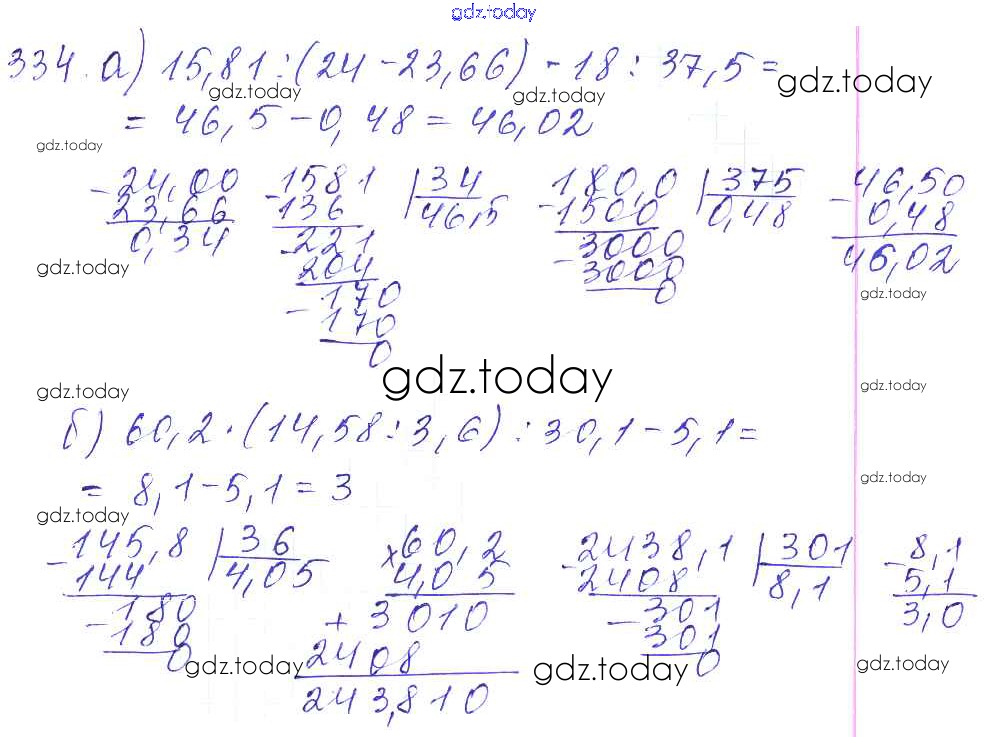 gdz.today
334. а) 15,81 : (24 - 23,66) - 18 : 37,5 =
gdz.today gdz.today gdz.today
= 46,5 - 0,48 = 46,02
gdz.today
-24,00 -1581 |34 -180,0 |375 -46,50
23,66 136 46,5 1500 0,48 0,48
0,34 -221 -3000 46,02
gdz.today 204 3000 gdz.today
-170 0
170
0
gdz.today
gdz.today gdz.today
б) 60,2 · (14,58 : 3,6) : 30,1 - 5,1 =
gdz.today
= 8,1 - 5,1 = 3
gdz.today
-145,8 |36 ×60,2 -2438,1 |301 -8,1
144 4,05 4,05 2408 8,1 5,1
-180 + 3010 -301 3,0
180 2408 301
0 243,810 0
gdz.today gdz.today gdz.today